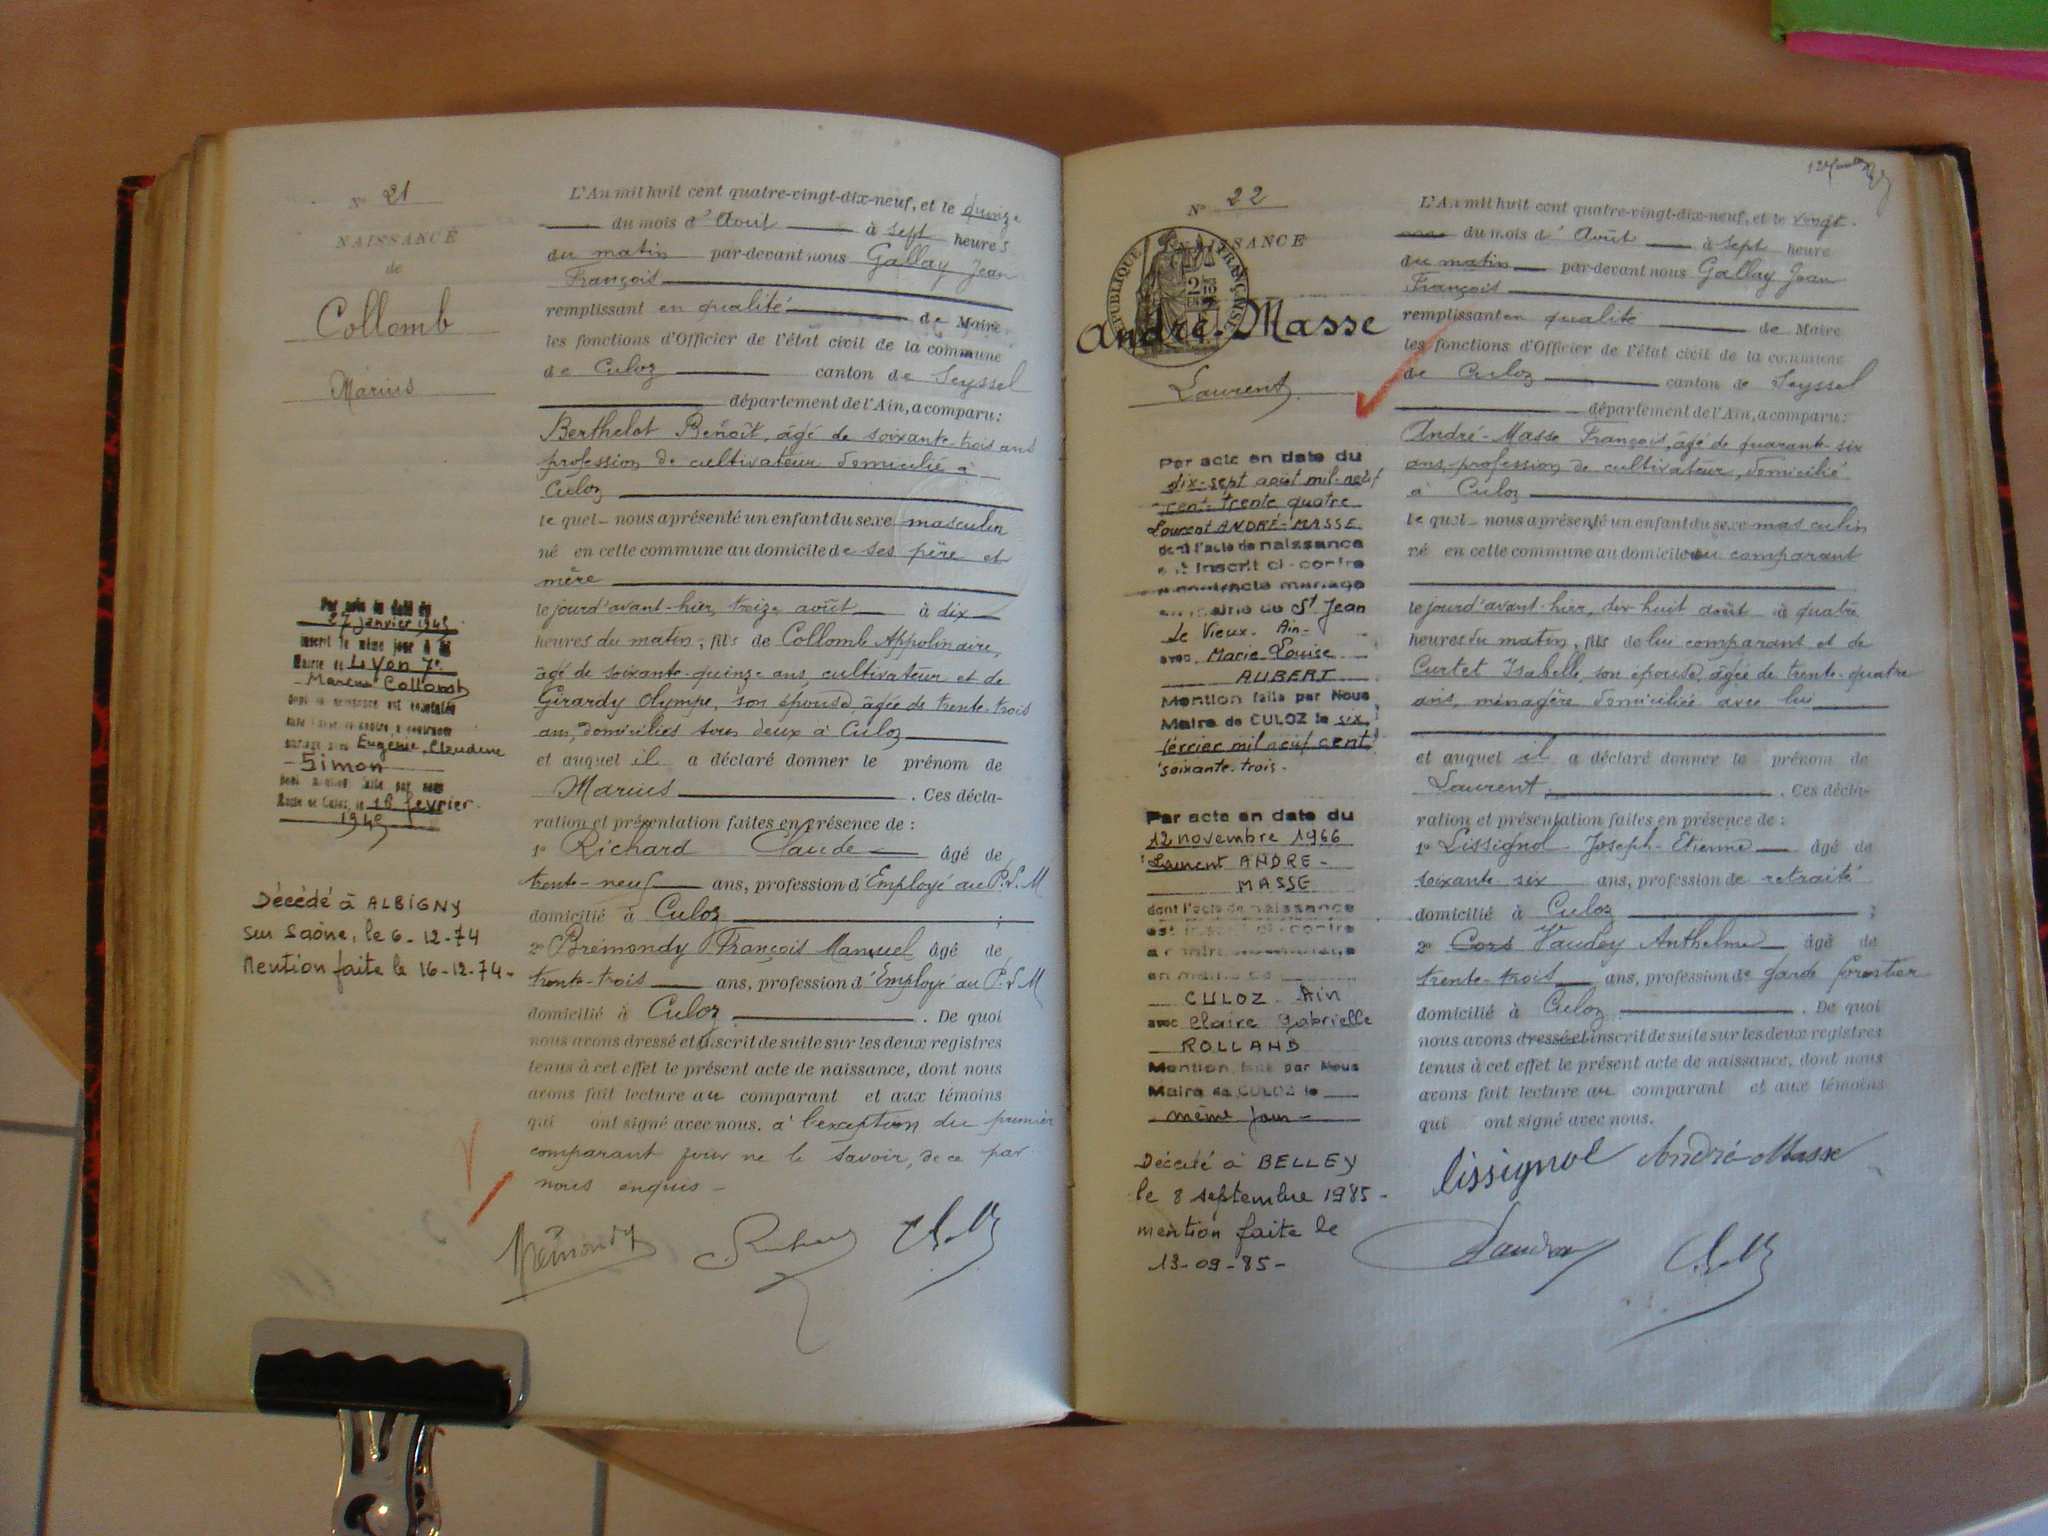 N° 21
NAISSANCE
de
Collomb
Marius
Par acte en date du
27 janvier 1945
inscrit le même jour à la
Mairie de Lyon 7e
Marius Collomb
dont la naissance est constatée
dans l'acte ci-contre a contracté
mariage avec Eugénie, Claudine
Simon
Mairie de Culoz, le 16 février
Décédé à ALBIGNY
sur Saône, le 6-12-74
Mention faite le 16-12-74-
L'An mil huit cent quatre-vingt-dix-neuf, et le quinze
du mois d'Août à sept heures
du matin par-devant nous Gallay Jean
François
remplissant en qualité de Maire
les fonctions d'Officier de l'état civil de la commune
de Culoz canton de Seyssel
département de l'Ain, a comparu :
Berthelot Benoît, âgé de soixante-trois ans
profession de cultivateur domicilié à
Culoz
lequel nous a présenté un enfant du sexe masculin
né en cette commune au domicile de ses père et
mère
le jour d'avant-hier, treize août à dix
heures du matin, fils de Collomb Appolinaire,
âgé de soixante-quinze ans, cultivateur et de
Girardy Olympe, son épouse, âgée de trente-trois
ans, domiciliés tous deux à Culoz
et auquel il a déclaré donner le prénom de
Marius . Ces décla-
ration et présentation faites en présence de :
1° Richard Claude âgé de
trente-neuf ans, profession d'Employé au P.L.M
domicilié à Culoz ;
2° Brémondy François Manuel âgé de
trente-trois ans, profession d'Employé au P.L.M
domicilié à Culoz . De quoi
nous avons dressé et inscrit de suite sur les deux registres
tenus à cet effet le présent acte de naissance, dont nous
avons fait lecture au comparant et aux témoins
qui ont signé avec nous. à l'exception du premier
comparant pour ne le savoir, de ce par
nous enquis -
Brémondy
N° 22
NAISSANCE
RÉPUBLIQUE FRANÇAISE
André-Masse
Laurent
Par acte en date du
dix-sept août mil-neuf
cent-trente quatre
Laurent ANDRÉ-MASSE
dont l'acte de naissance
est inscrit ci-contre
a contracté mariage
en mairie de St Jean
Le Vieux. Ain-
avec Marie Louise
AUBERT
Mention faite par Nous
Maire de CULOZ le six
février mil neuf cent
soixante-trois.
Par acte en date du
12 novembre 1966
Laurent ANDRE-
MASSE
dont l'acte de naissance
est inscrit ci-contre
a contracté mariage
en mairie de
CULOZ Ain
avec Claire Gabrielle
ROLLAND
Mention faite par Nous
Maire de CULOZ le
même jour -
Décédé à BELLEY
le 8 septembre 1985-
mention faite le
13-09-85-
L'An mil huit cent quatre-vingt-dix-neuf, et le vingt
du mois d'Août à sept heure
du matin par-devant nous Gallay Jean
François
remplissant en qualité de Maire
les fonctions d'Officier de l'état civil de la commune
de Culoz canton de Seyssel
département de l'Ain, a comparu :
André-Masse François, âgé de quarante-six
ans, profession de cultivateur, domicilié
à Culoz
lequel nous a présenté un enfant du sexe masculin
né en cette commune au domicile du comparant
le jour d'avant-hier, dix-huit août à quatre
heures du matin, fils de lui comparant et de
Curtet Isabelle, son épouse, âgée de trente-quatre
ans, ménagère domiciliée avec lui
et auquel il a déclaré donner le prénom de
Laurent . Ces décla-
ration et présentation faites en présence de :
1° Lissignol Joseph-Etienne âgé de
soixante six ans, profession de retraité
domicilié à Culoz ;
2° Cors Vaudey Anthelme âgé de
trente-trois ans, profession de garde forestier
domicilié à Culoz . De quoi
nous avons dressé et inscrit de suite sur les deux registres
tenus à cet effet le présent acte de naissance, dont nous
avons fait lecture au comparant et aux témoins
qui ont signé avec nous.
Lissignol André-Masse